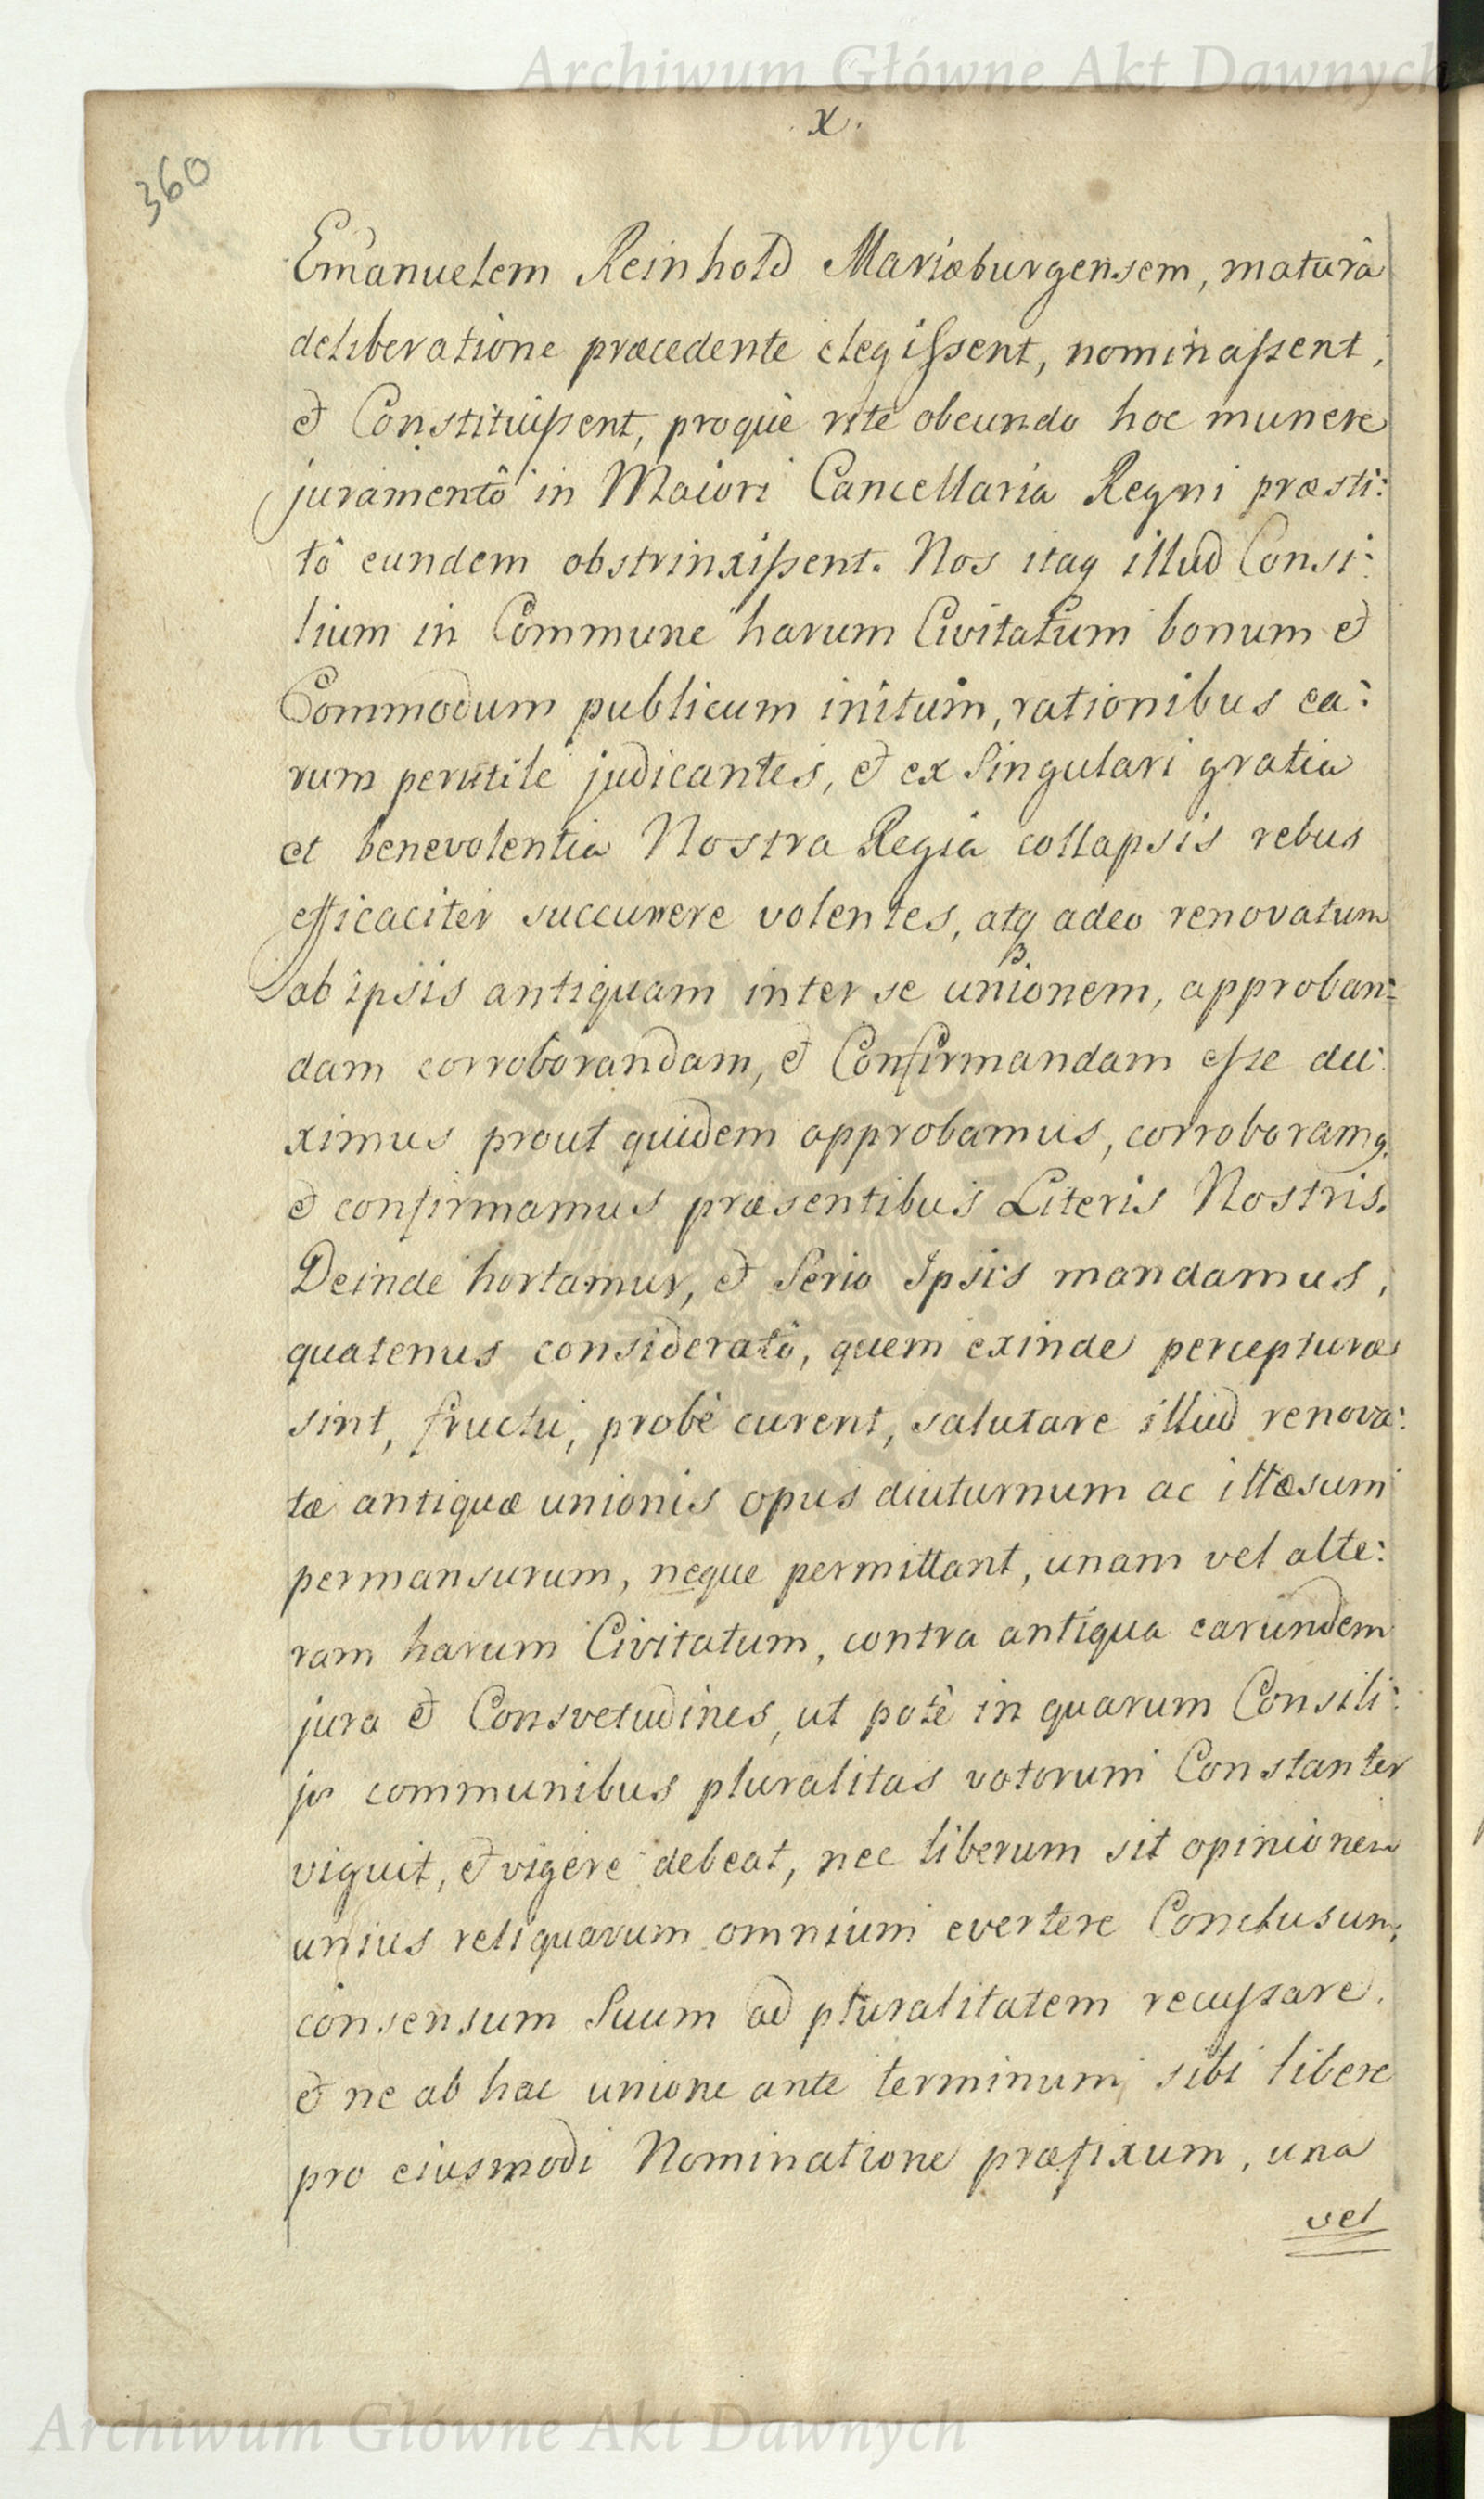 Archiwum Główne Akt Dawnych
x.
360
Emanuelem Reinhold Mariæburgensem, maturâ
deliberatione præcedente elegißent, nominaßent,
et Constituißent, proque rite obeundo hoc munere
juramentô in Maiori Cancellaria Regni præsti:
tô eundem obstrinxißent. Nos itaq illud Consi:
lium in Commune harum Civitatum bonum et
Commodum publicum initum, rationibus ea:
rum perutile judicantes, et ex Singulari gratia
et benevolentia Nostra Regia collapsis rebus
efficaciter succurrere volentes, atq adeo renovatum
ab ipsis antiquam inter se unionem, approban:
dam corroborandam, et Confirmandam eße du:
ximus prout quidem approbamus, corroboramq.
et confirmamus præsentibus Literis Nostris.
Deinde hortamur, et Serio Ipsis mandamus,
quatenus consideratô, quem exinde percepturæ
sint, fructu, probè curent, salutare illud renova:
tæ antiquæ unionis opus diuturnum ac illæsum
permansurum, neque permittant, unam vel alte:
ram harum Civitatum, contra antiqua earundem
jura et Consvetudines, ut potè in quarum Consili:
js communibus pluralitas votorum Constanter
viguit, et vigere debeat, nec liberum sit opinionem
unius reliquarum omnium evertere Conclusum,
consensum Suum ad pluralitatem recußare,
et ne ab hac unione ante terminum sibi libere
pro eiusmodi Nominatione præfixum, una
vel
Archiwum Główne Akt Dawnych